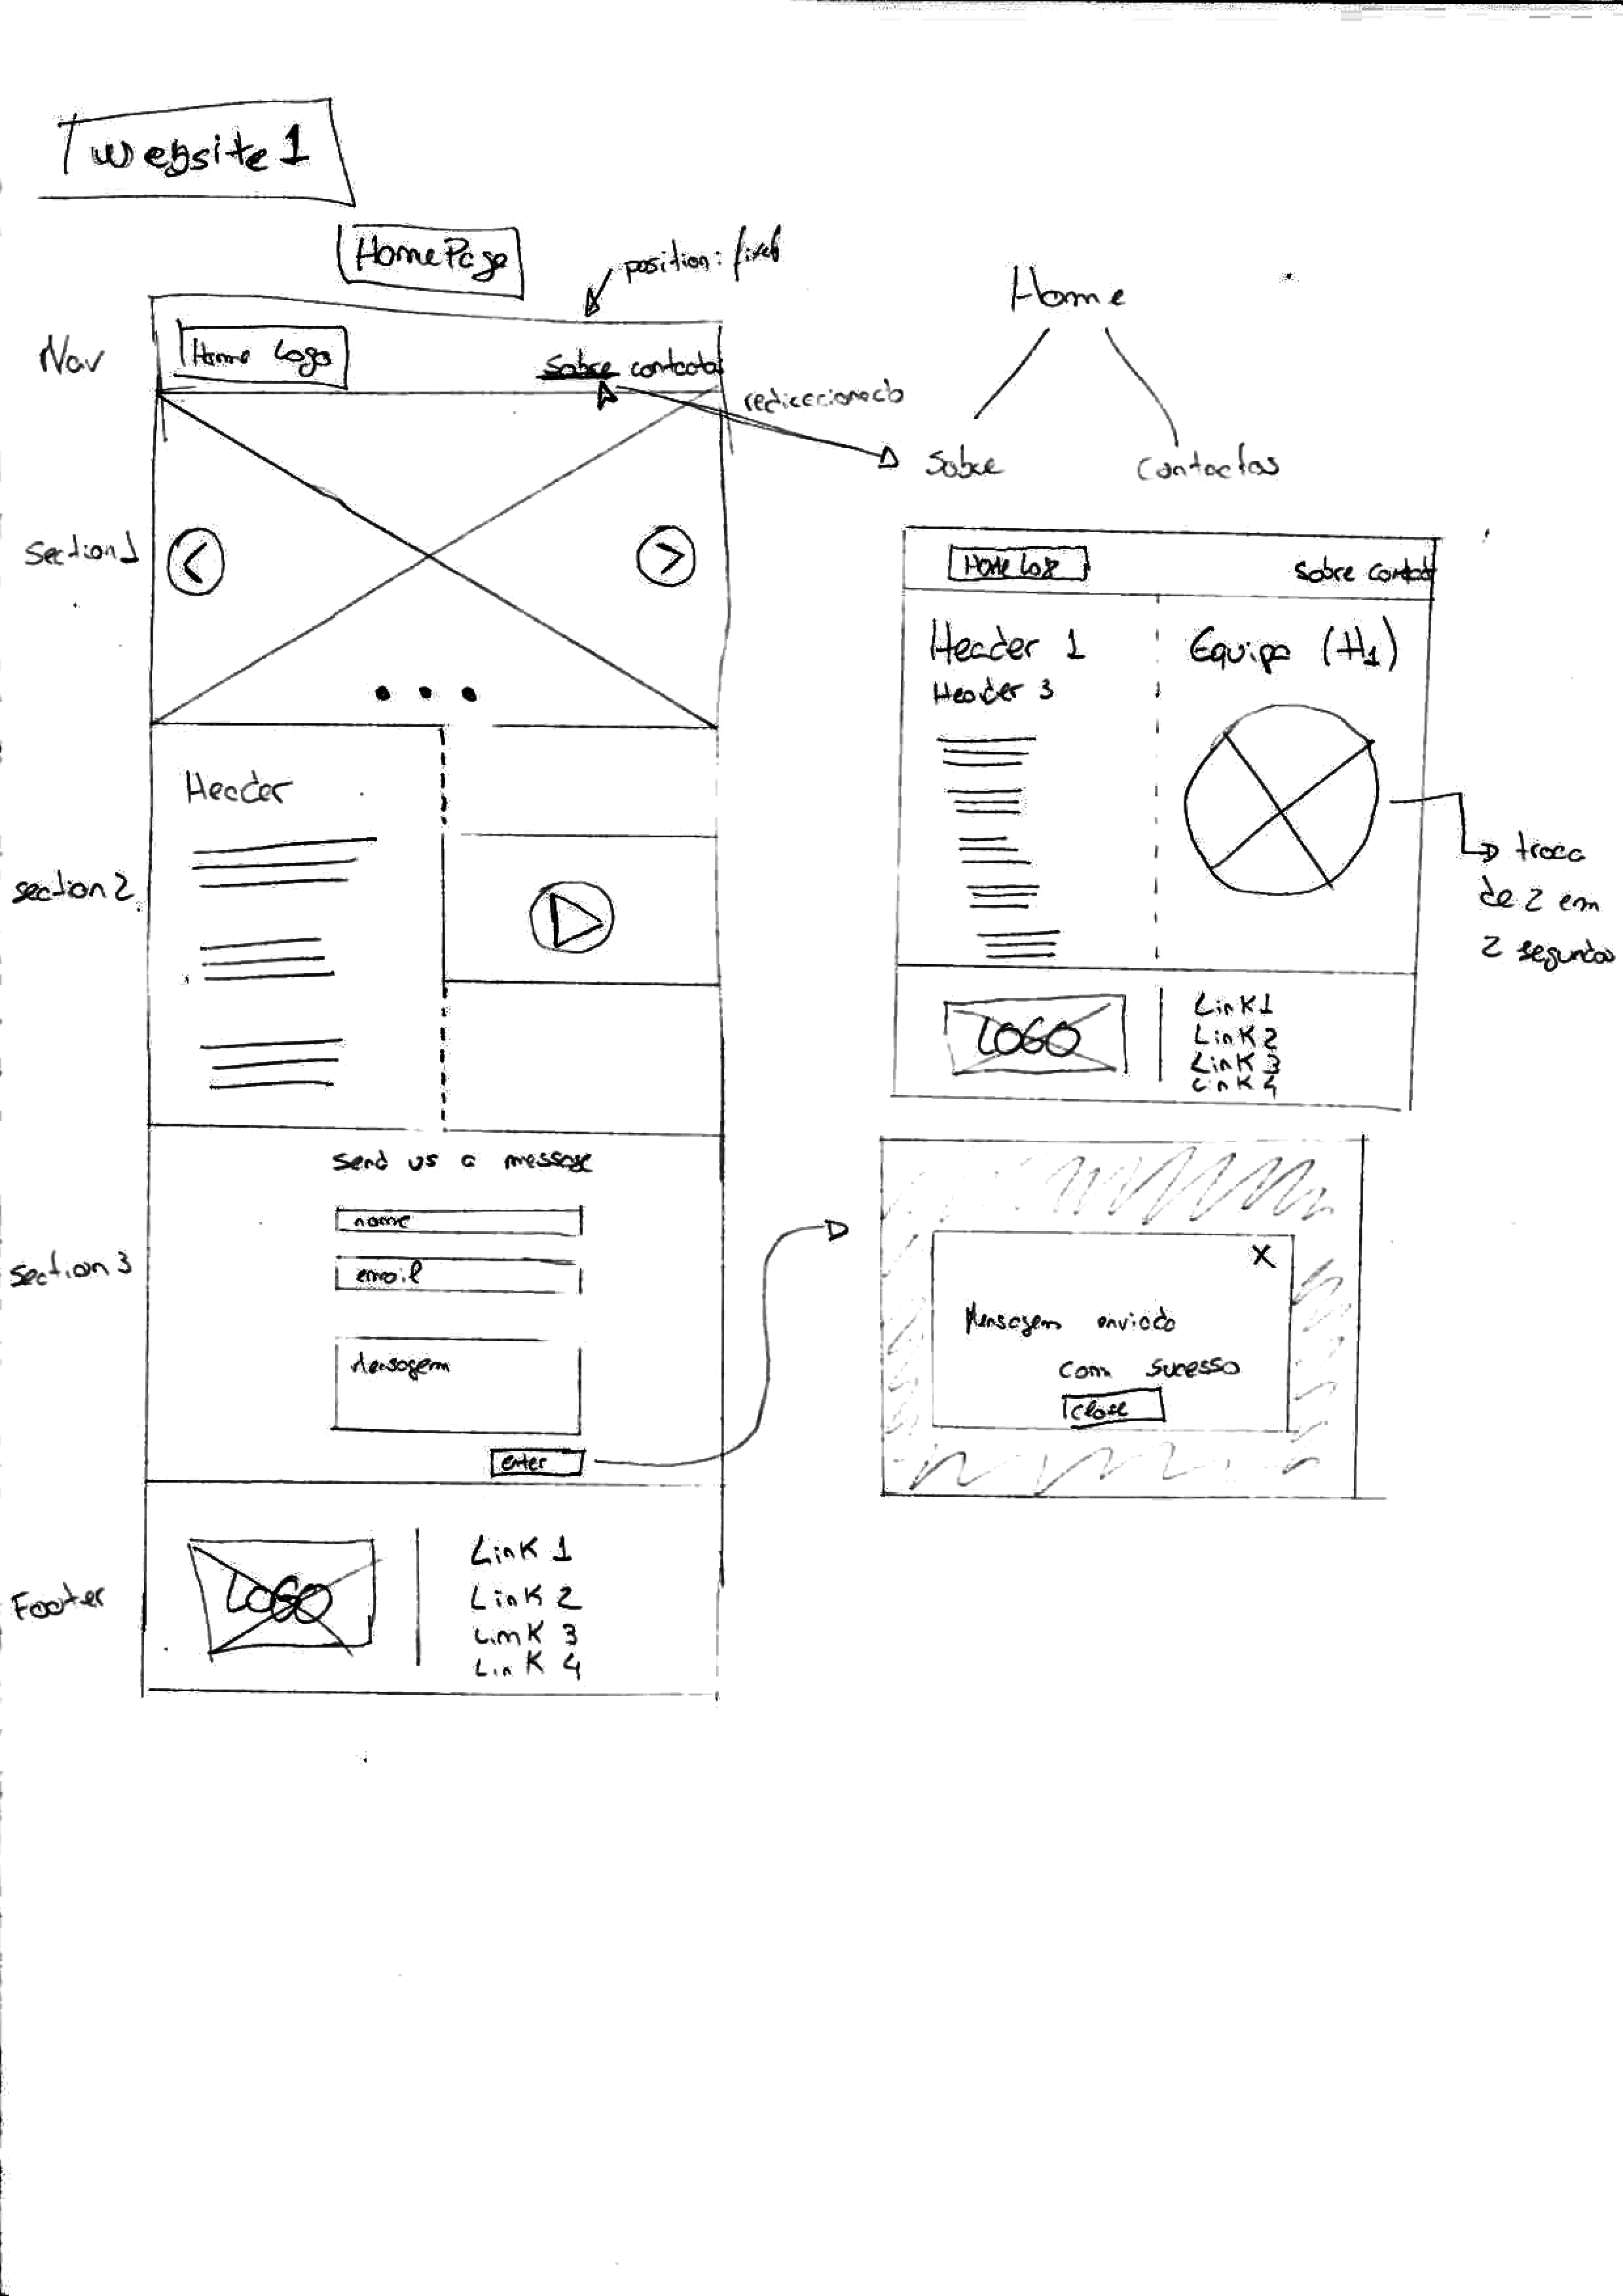 Website 1
HomePage
position: fixed
Nav
Home Logo
Sobre contactos
redirecionado
Home
Sobre
Contactos
section 1
<
>
Header
section 2
Send us a message
nome
email
Mensagem
enter
section 3
Footer
LOGO
Link 1
Link 2
Link 3
Link 4
Home Logo
Sobre Contact
Header 1
Header 3
Equipa (H1)
troca
de 2 em
2 segundos
LOGO
Link 1
Link 2
Link 3
Link 4
X
Mensagem enviado
com sucesso
Close